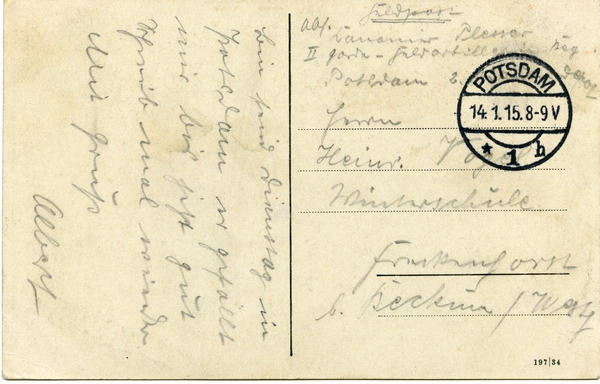 Bin seid Dienstag in
Potsdam er gefällt
mir bis jetzt gut
Schreib mal wieder
Mit Gruß
Albert
Feldpost
Abs. Kanonier Plesser
II Garde-Feldartillerie Reg.
Potsdam 2.
POTSDAM
14.1.15.8-9V
* 1 h
Herrn
Heinr.
Winterschule
Freckenhorst
b. Beckum / Westf
197/34